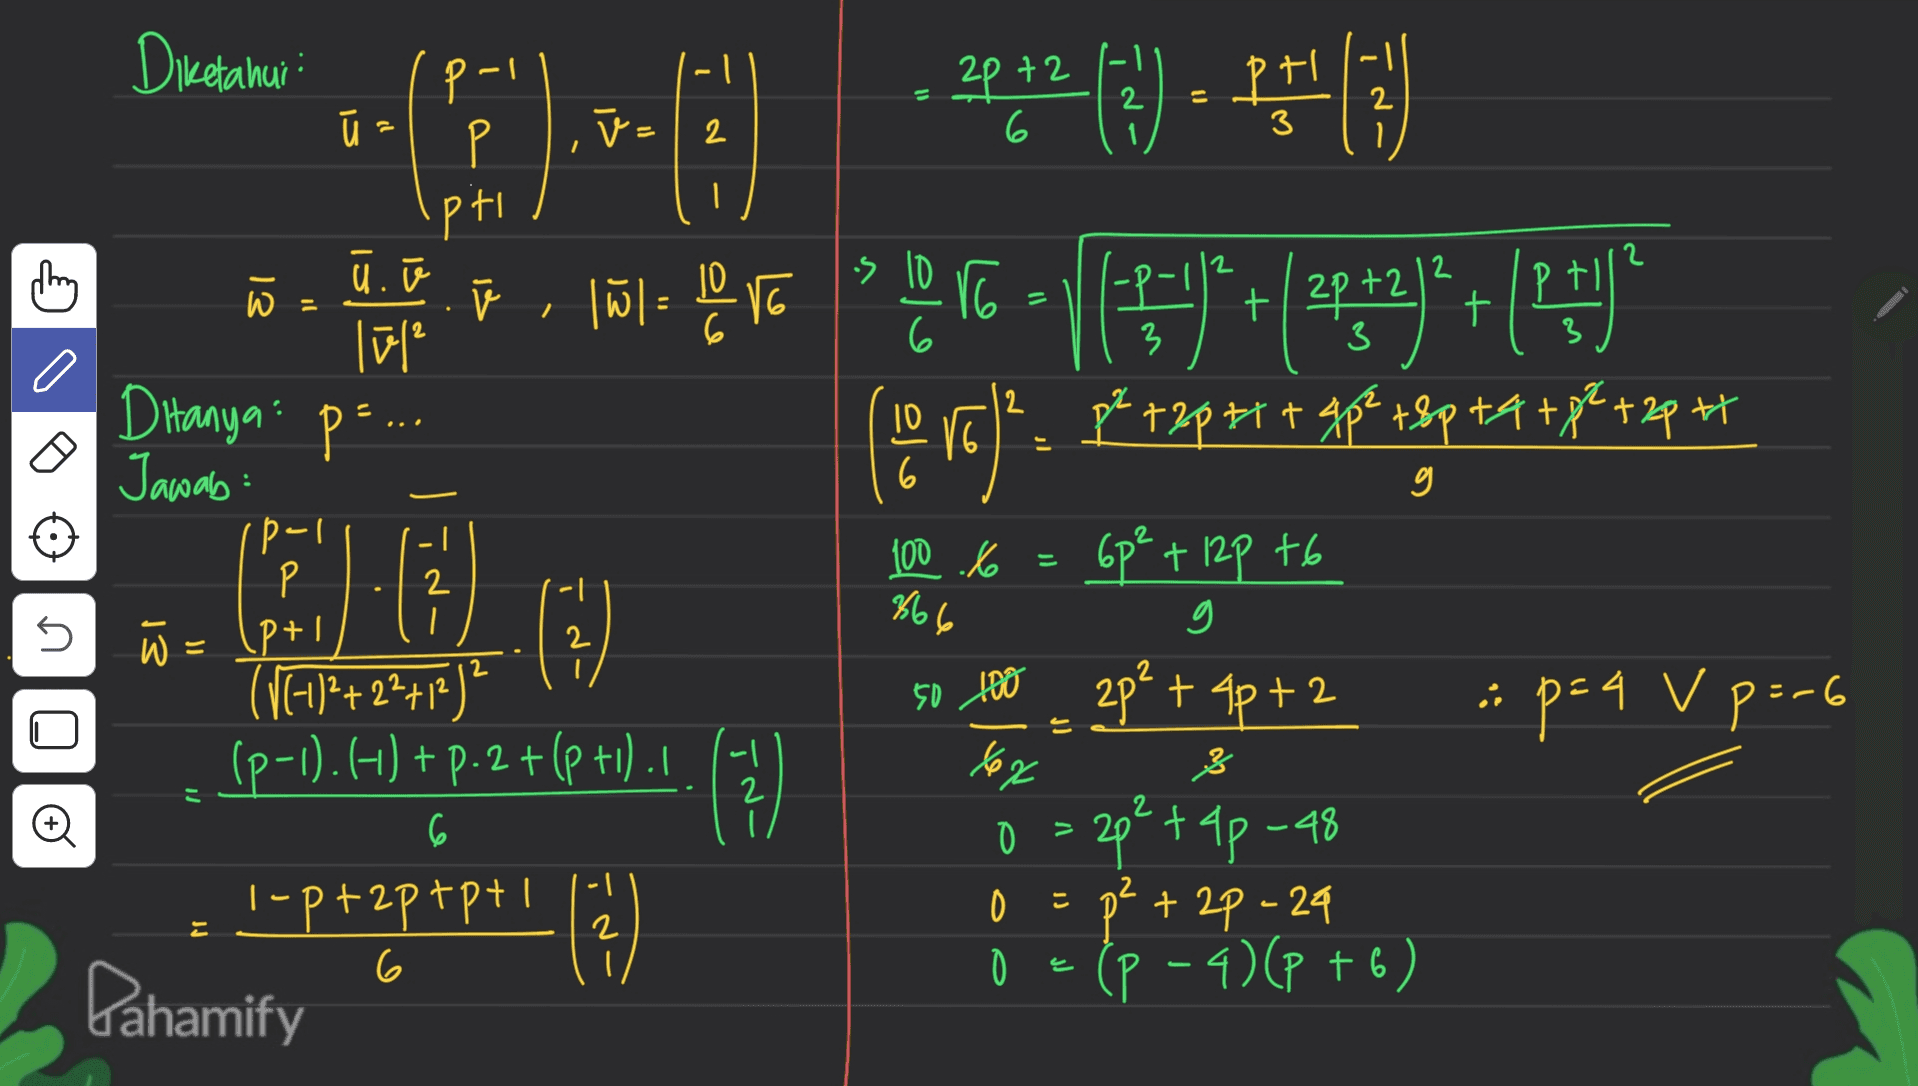 Diketahui:
ū = (p-1, p, p+1), v̄ = (-1, 2, 1)
w̄ = ū.v̄/|v̄|² . v̄ , |w̄| = 10/6 √6
Ditanya: p = ...
Jawab:
w̄ = (p-1, p, p+1) . (-1, 2, 1) / (√((-1)²+2²+1²))² . (-1, 2, 1)
= (p-1).(-1) + p.2 + (p+1).1 / 6 . (-1, 2, 1)
= 1-p+2p+p+1 / 6 (-1, 2, 1)
= 2p+2 / 6 (-1, 2, 1) = p+1 / 3 (-1, 2, 1)
10/6 √6 = √((-p-1 / 3)² + (2p+2 / 3)² + (p+1 / 3)²)
(10/6 √6)² = p²+2p+1+4p²+8p+4+p²+2p+1 / 9
100/36 6 .6 = 6p²+12p+6 / 9
50 100/6 2 = 2p²+4p+2 / 3
0 = 2p²+4p-48
0 = p²+2p-24
0 = (p-4)(p+6)
∴ p=4 ∨ p=-6
Pahamify